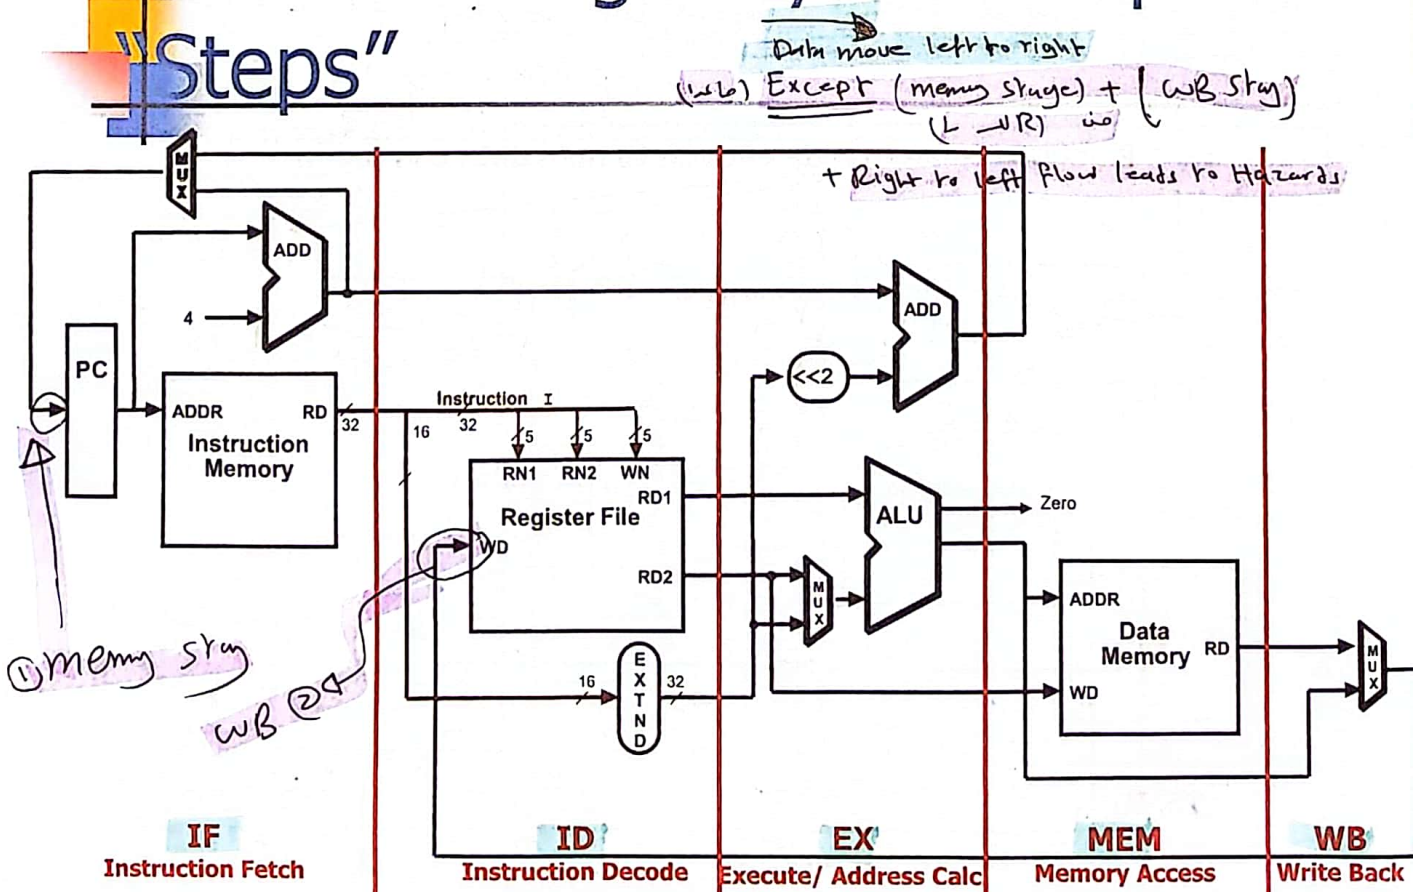 "Steps"
Data move left to right
Except (memory stage) + (WB stag)
+ Right to left flow leads to Hazards
MUX
ADD
4
PC
ADDR
RD
Instruction Memory
32
Instruction I
32
16
5
5
5
RN1
RN2
WN
RD1
Register File
WD
RD2
16
EXTND
32
<<2
ADD
ALU
Zero
MUX
ADDR
Data Memory
RD
WD
MUX
① memy stag
WB ②
IF
Instruction Fetch
ID
Instruction Decode
EX
Execute/ Address Calc
MEM
Memory Access
WB
Write Back